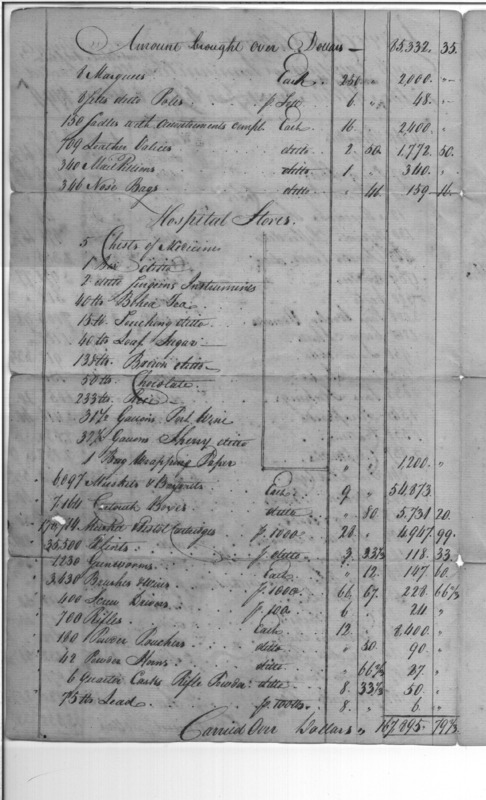 Amount brought over Dollars — 85,332. 35.
8 Marquees Each 250 " 2,000. "
8 setts ditto Poles p. Sett 6 " 48. "
150 Sadles with Accoutrements compl. Each 16 " 2400. "
709 Leather Valices ditto 2 50. 1,772. 50.
340 Mail Pillions ditto 1 " 340. "
346 Nose Bags ditto " 46. 159. 16.
Hospital Stores.
5 Chests of Medicine
1 ditto
2 ditto Surgeons Instruments
40 lb Bohea Tea
15 lb. Souchong ditto
40 lb Loaf Sugar
138 lb Brown ditto
50 lb. Chocolate
233 lb Rice
31½ Gallons Port Wine
37½ Gallons Sherry ditto
1 Bag Wrapping Paper " " 1,200. "
6,097 Muskets & Bayonets Each 9 " 54,873. "
7,164 Cartouch Boxes ditto " 80 5,731 20.
Musket & Pistol Cartridges p. 1000. 28 4,947. 99.
35,500 Flints p. ditto 3 33⅓ 118. 33.
1,230 Gunworms Each " 12. 147 60.
3,430 Brushes & Wires p. 1000 66 67. 228. 66⅔
400 Screw Drivers p. 100. 6 " 24 "
700 Rifles Each 12 " 8,400. "
180 Powder Pouches ditto " 50. 90. "
42 Powder Horns ditto " 66⅔ 27 "
6 Quarter Casks Rifle Powder ditto 8 33⅓ 50. "
75 lb Lead p. 100 lb 8. " 6. "
Carried Over Dollars " 167,895. 79⅔